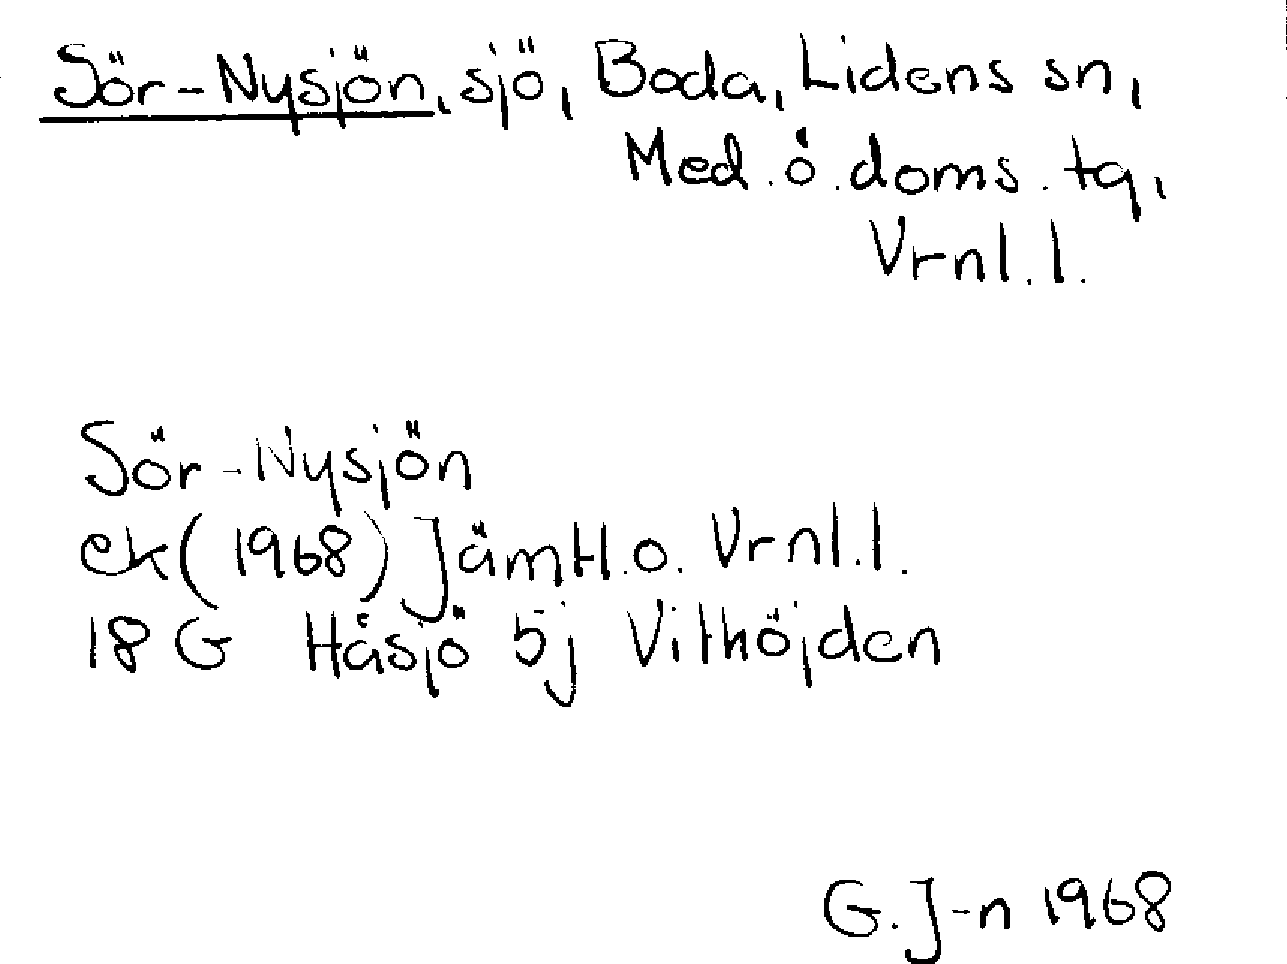 Sör-Nysjön, sjö, Boda, Lidens sn,
Med. ö. doms. tg,
Vrnl. l.
Sör-Nysjön
ek (1968) Jämtl. o. Vrnl. l.
18 G Håsjö 5j Vithöjden
G. J-n 1968